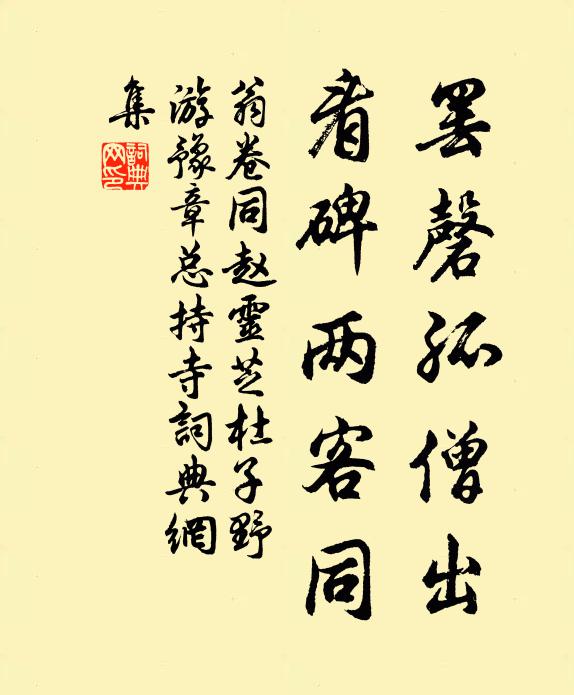 罢磬孤僧出
看碑两客同
翁卷同赵靈芝杜子野
游豫章总持寺詞典網
集
詞典网印